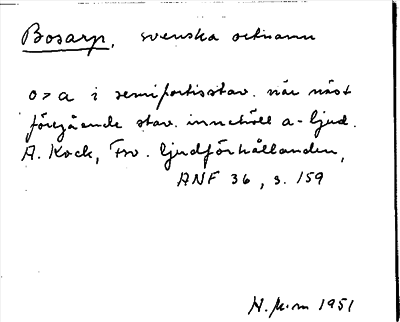 Bosarp, svenska ortnamn
o > a i semifortisstav. när näst
föregående stav. innehöll a-ljud.
A. Kock, Fsv. ljudförhållanden,
ANF 36, s. 159
H. 1951